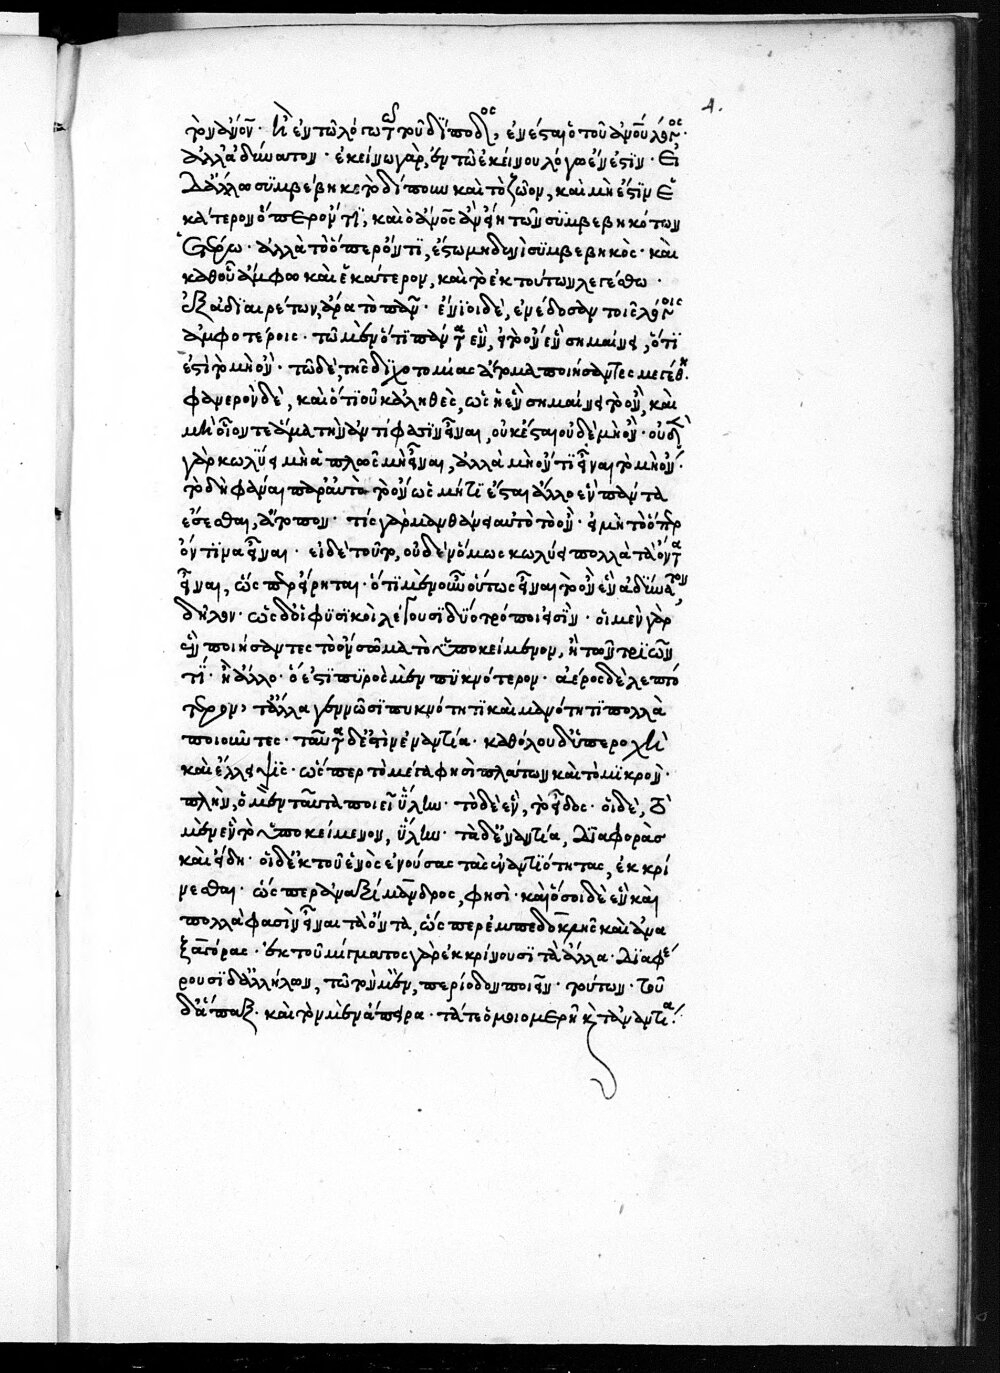 τὸν ἄνον· ἢ ἐν τῶ λόγω τῶ τοῦ δίποδος, ἐνέσται ὁ τοῦ ἀνου λόγος·
ἀλλ' ἀδύνατον· ἐκείνω γὰρ, ἐν τῶ ἐκείνου λόγω ἔνεστιν· Εἰ
δ' ἄλλω συμβέβηκε τὸ δίπουν καὶ τὸ ζῶον, καὶ μὴ ἔστιν ἑ
κάτερον ὅπερ ὄν τι, καὶ ὁ ἄνος ἂν εἴη τῶν συμβεβηκότων
ἑτέρω· ἀλλὰ τὸ ὅπερ ὄν τι, ἔστω μηδενὶ συμβεβηκὸς· καὶ
καθ' οὗ ἄμφω καὶ ἑκάτερον, καὶ τὸ ἐκ τούτων λεγέσθω·
ἐξ ἀδιαιρέτων ἄρα τὸ πᾶν· ἔνιοι δὲ, ἐνέδοσαν τοῖς λόγοις
ἀμφοτέροις· τῶ μὲν ὅτι πάντα ἓν, εἰ τὸ ὂν ἓν σημαίνει, ὅτι
ἐστὶ τὸ μὴ ὂν· τῶ δὲ, τῆς διχοτομίας ἄτομα ποιήσαντες μεγέθη·
φανερὸν δὲ, καὶ ὅτι οὐκ ἀληθὲς, ὡς εἰ ἓν σημαίνει τὸ ὂν, καὶ
μὴ οἷόν τε ἅμα τὴν ἀντίφασιν εἶναι, οὐκ ἔσται οὐδὲ μὴ ὂν· οὐδὲν
γὰρ κωλύει μὴ ἁπλῶς μὴ εἶναι, ἀλλὰ μὴ ὄν τι εἶναι τὸ μὴ ὄν·
τὸ δὴ φάναι παρ' αὐτὸ τὸ ὂν ὡς μή τι ἔσται ἄλλο ἓν πάντα
ἔσεσθαι, ἄτοπον· τίς γὰρ μανθάνει αὐτὸ τὸ ὂν· εἰ μὴ τὸ ὅπερ
ὄν τινα εἶναι· εἰ δὲ τοῦτο, οὐδὲν ὅμως κωλύει πολλὰ τὰ ὄντα
εἶναι, ὥσπερ εἴρηται· ὅτι μὲν οὖν οὕτως εἶναι τὸ ὂν ἓν ἀδύνατον,
δῆλον· ὡς δ' οἱ φυσικοὶ λέγουσι δύο τρόποι εἰσὶν· οἱ μὲν γὰρ
ἓν ποιήσαντες τὸ ὂν σῶμα τὸ ὑποκείμενον, ἢ τῶν τριῶν
τὶ· ἢ ἄλλο· ὅ ἐστι πυρὸς μὲν πυκνότερον· ἀέρος δὲ λεπτό
τερον, τἄλλα γεννῶσι πυκνότητι καὶ μανότητι πολλὰ
ποιοῦντες· ταῦτα δ' ἐστὶν ἐναντία· καθόλου δ' ὑπεροχὴ
καὶ ἔλλειψις· ὥσπερ τὸ μέγα φησὶ πλάτων καὶ τὸ μικρὸν·
πλὴν, ὁ μὲν ταῦτα ποιεῖ ὕλην· τὸ δὲ ἓν, τὸ εἶδος· οἱ δὲ, τὸ
μὲν ἓν τὸ ὑποκείμενον, ὕλην· τὰ δ' ἐναντία, διαφορὰς
καὶ εἴδη· οἱ δ' ἐκ τοῦ ἑνὸς ἐνούσας τὰς ἐναντιότητας, ἐκκρί
νεσθαι· ὥσπερ ἀναξίμανδρος, φησὶ· καὶ ὅσοι δὲ ἓν καὶ
πολλὰ φασὶν εἶναι τὰ ὄντα, ὥσπερ ἐμπεδοκλῆς καὶ ἀνα
ξαγόρας· ἐκ τοῦ μίγματος γὰρ ἐκκρίνουσι τὰ ἄλλα· διαφέ
ρουσι δ' ἀλλήλων, τῶ τὸν μὲν, περίοδον ποιεῖν τούτων· τὸν
δ' ἅπαξ· καὶ τὸν μὲν ἄπειρα· τά τε ὁμοιομερῆ καὶ τἀναντία·